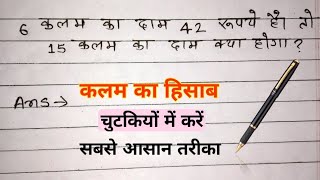 6 कलम का दाम 42 रूपये है। तो
15 कलम का दाम क्या होगा?
Ans→
कलम का हिसाब
चुटकियों में करें
सबसे आसान तरीका